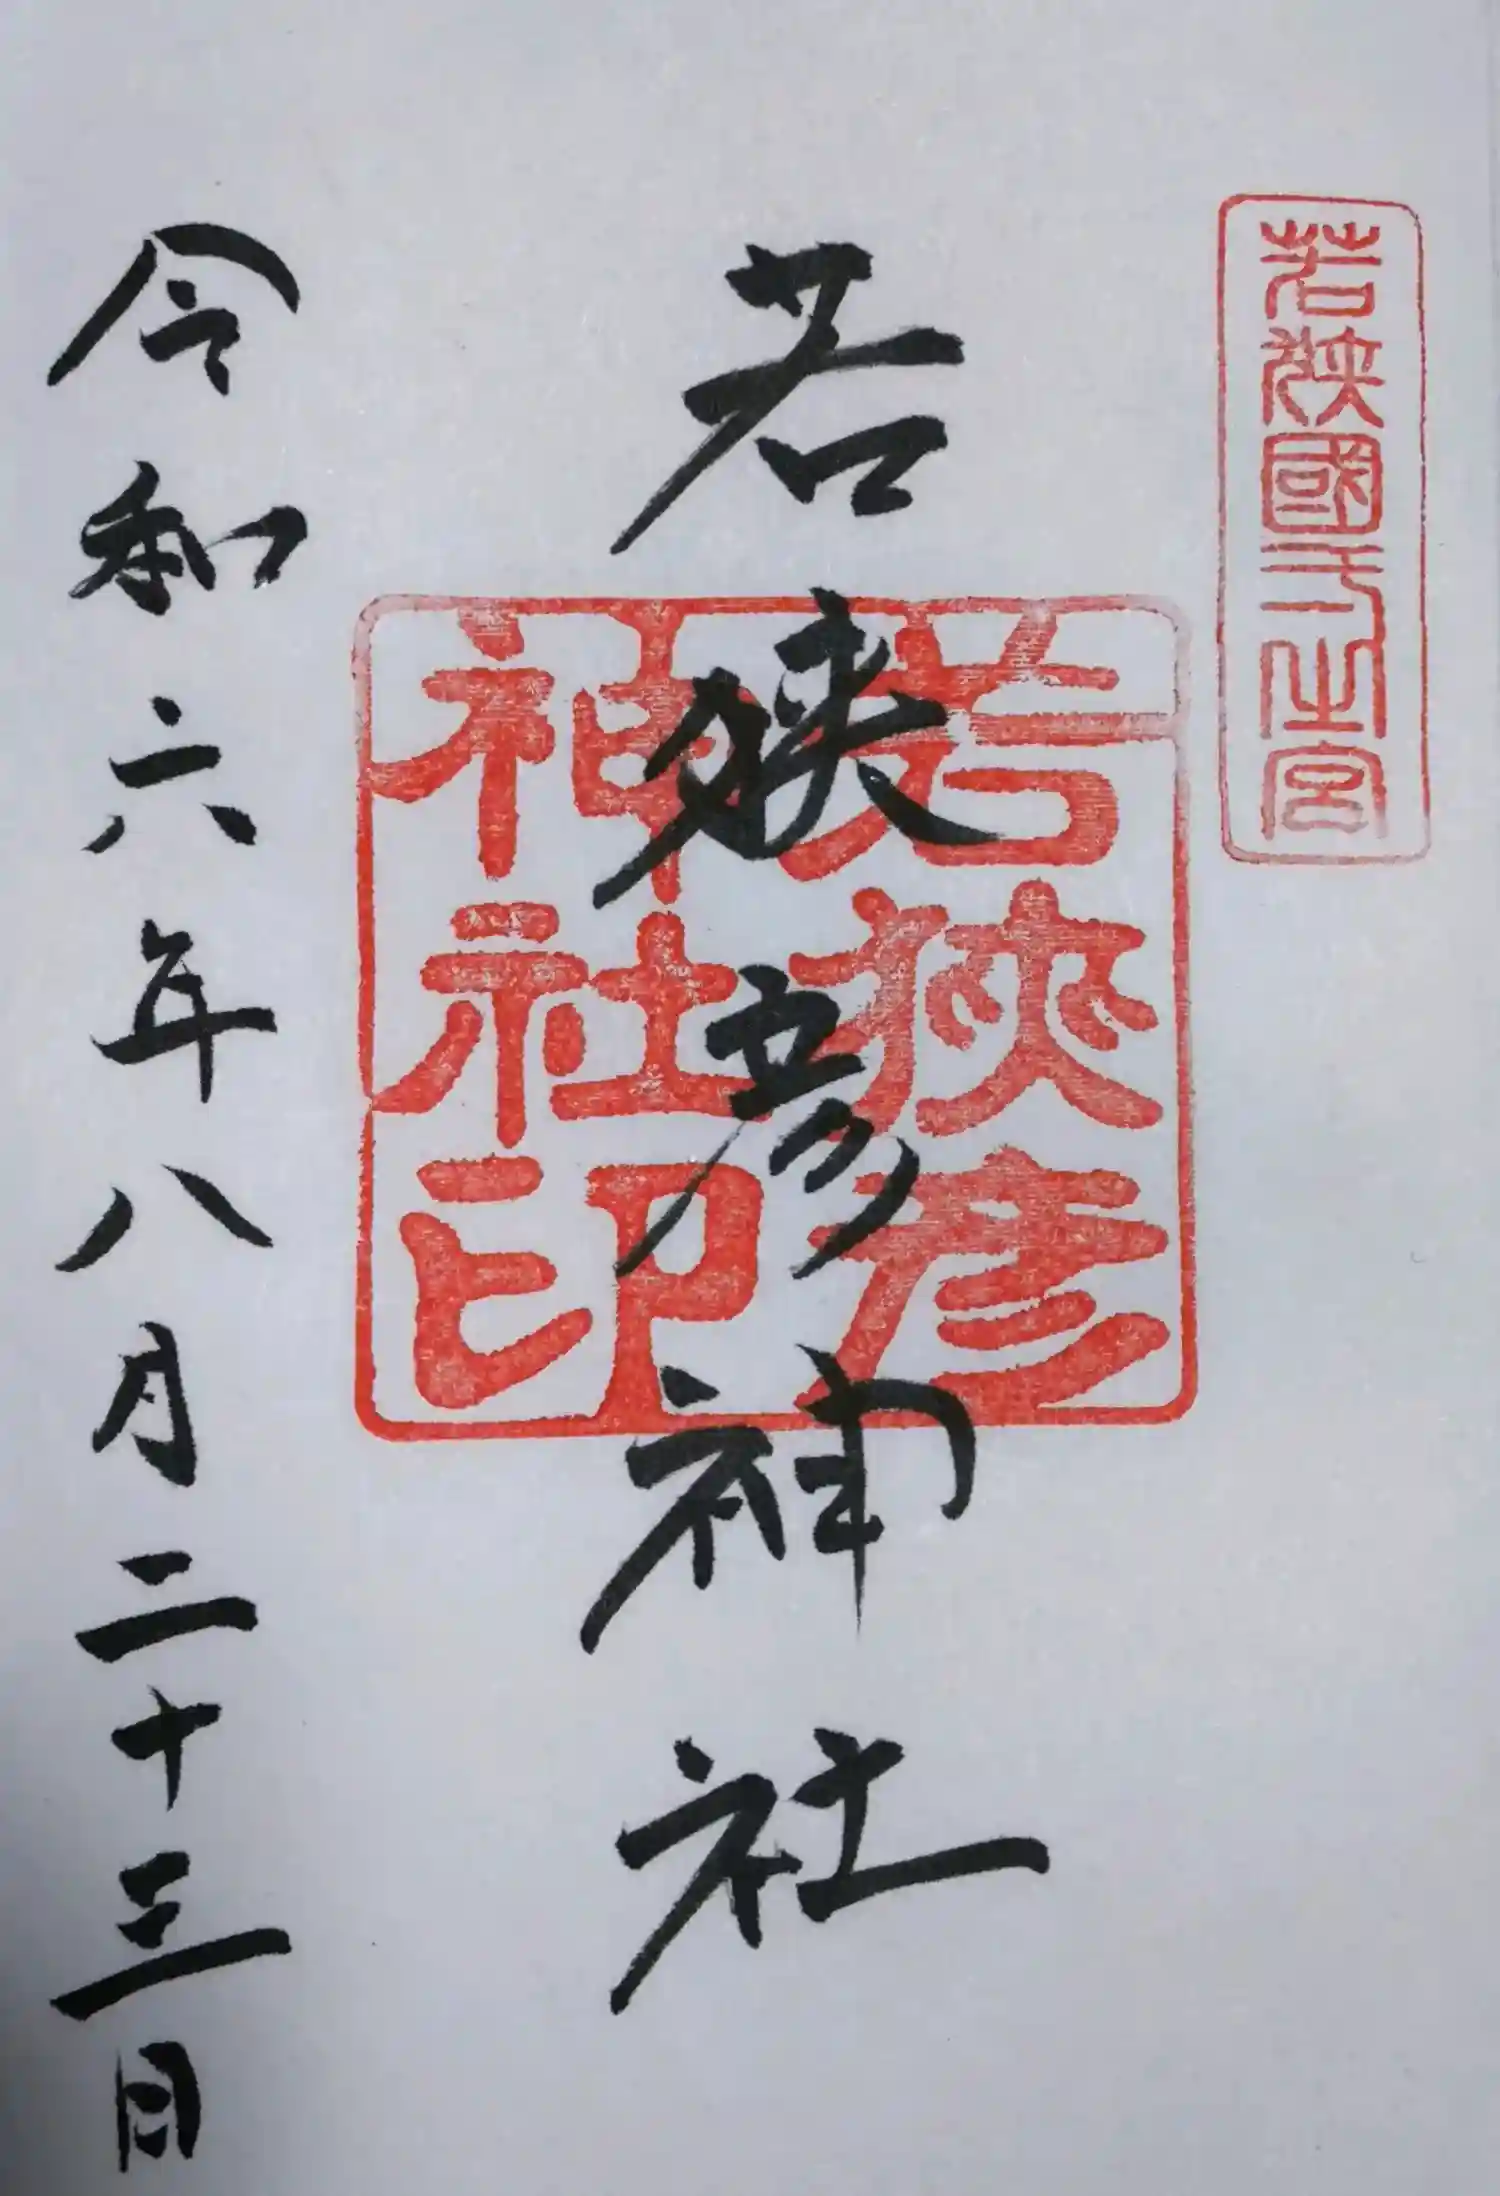 若狭國一之宮
若狭彦神社
若狭彦
神社印
令和六年八月二十三日